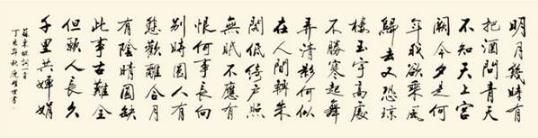 明月幾時有
把酒問青天
不知天上宮
闕今夕是何
年我欲乘風
歸去又恐瓊
樓玉宇高處
不勝寒起舞
弄清影何似
在人間轉朱
閣低綺户照
無眠不應有
恨何事長向
別時圓人有
悲歡離合月
有陰晴圓缺
此事古難全
但願人長久
千里共嬋娟
蘇東坡詞一首
丁亥年秋